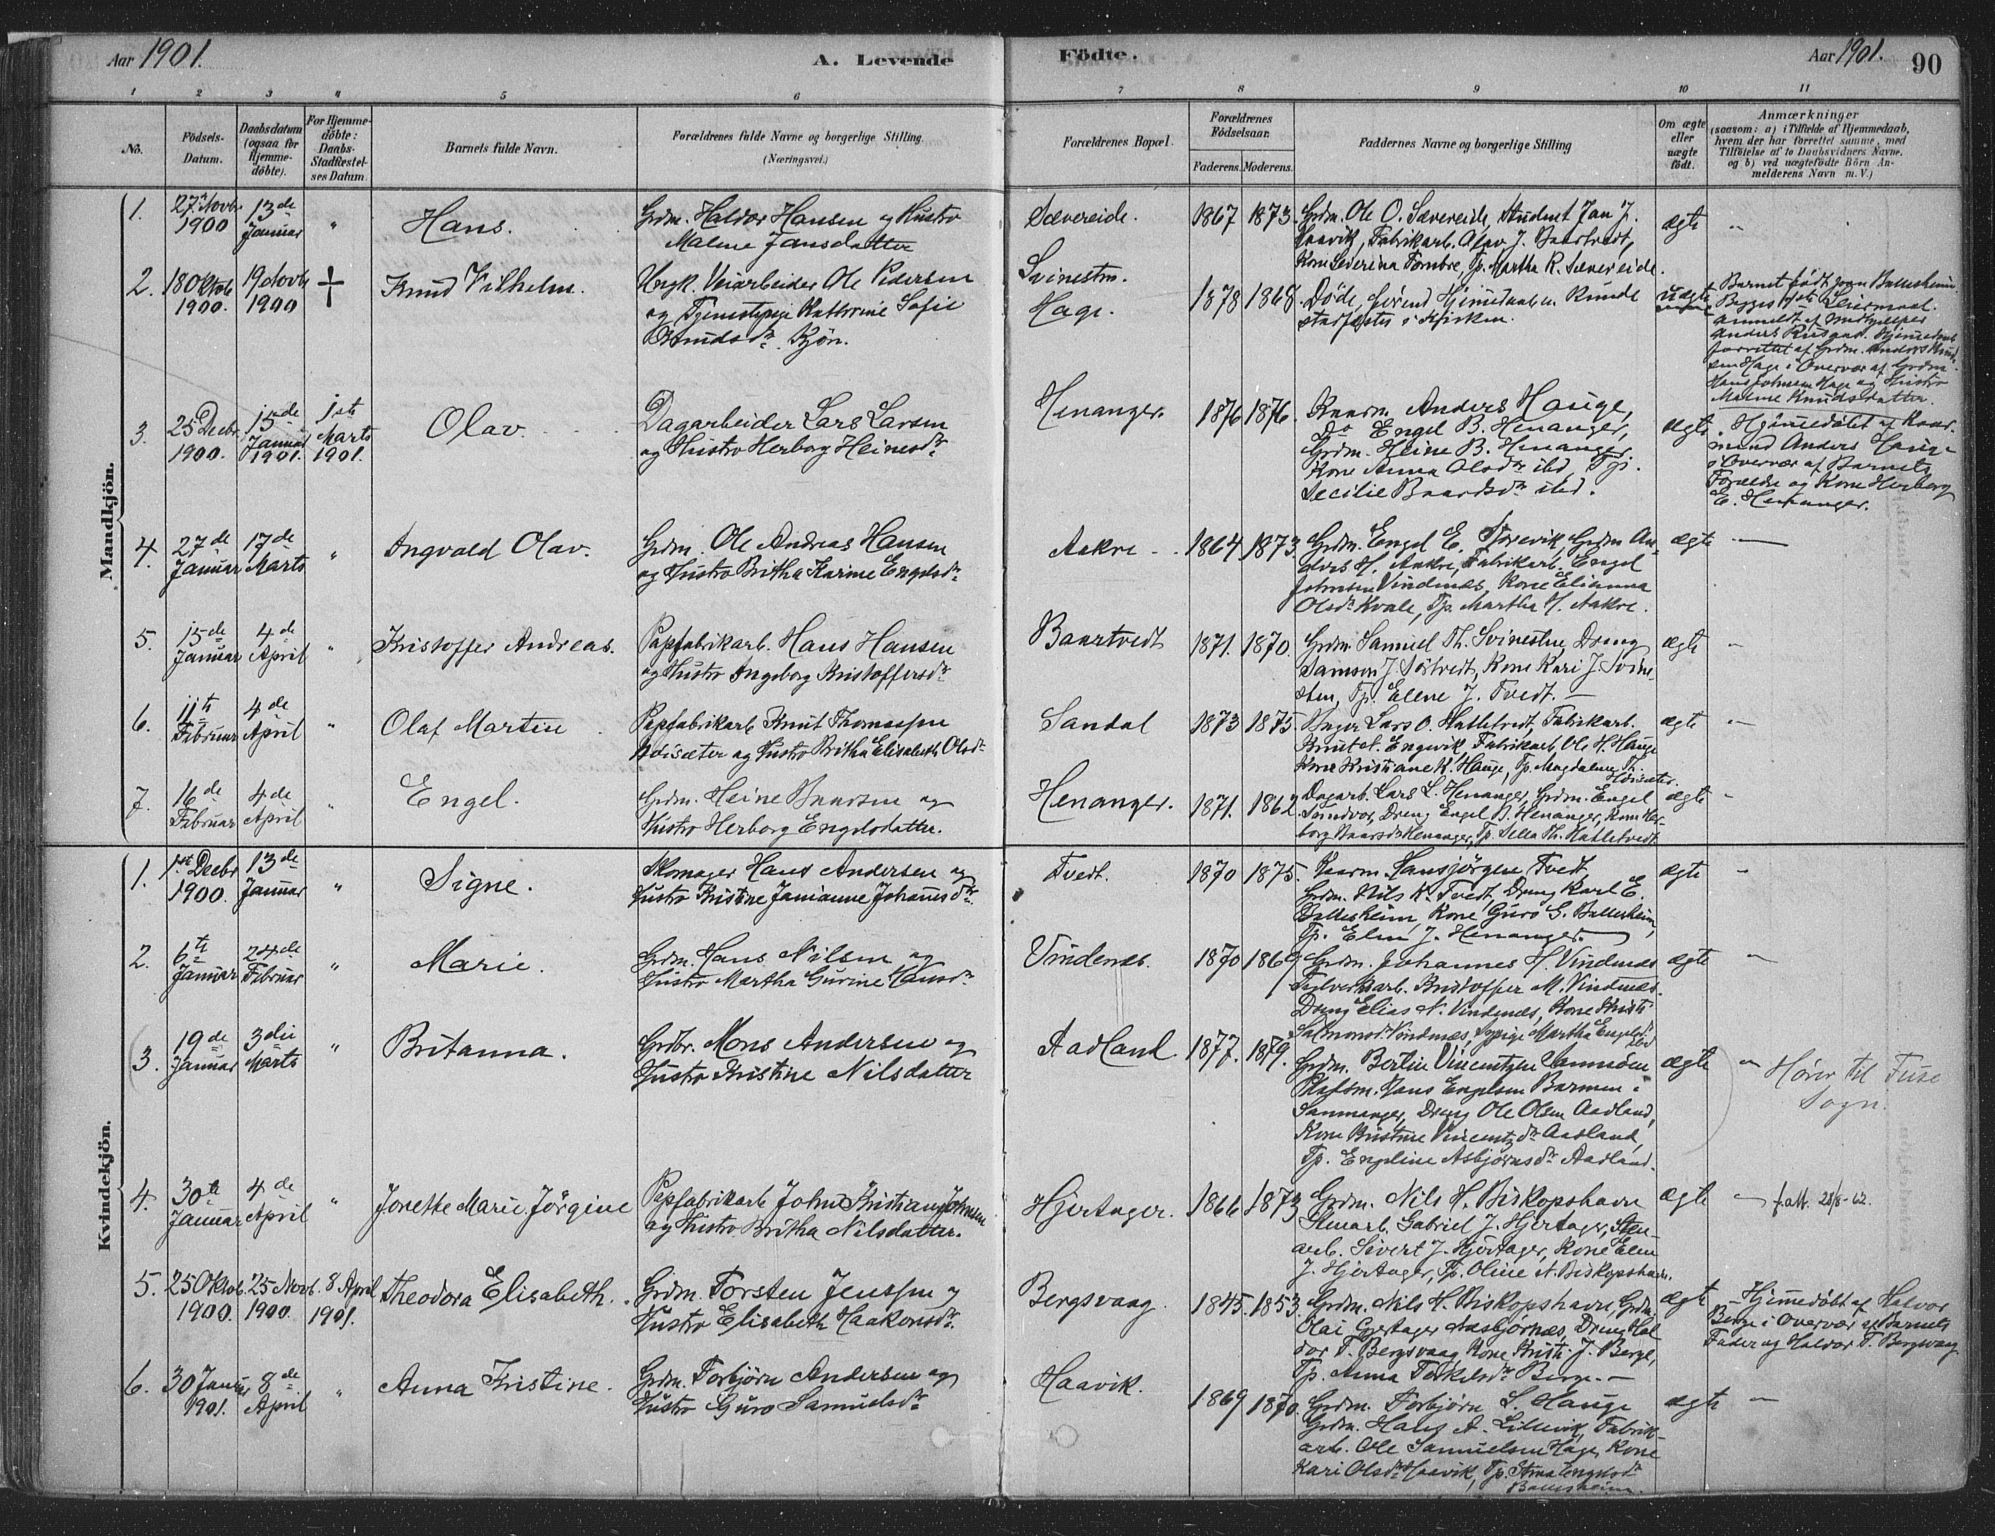 Aar 1901.
A. Levende
Födte.
Aar 1901.
90
1 2 3 4 5 6 7 8 9 10 11
No.
Födsels-
Datum.
Daabsdatum
(ogsaa for
Hjemme-
döbte).
For Hjemme-
döbte:
Daabs-
Stadfæstel-
ses Datum
Barnets fulde Navn.
Forældrenes fulde Navne og borgerlige Stilling.
(Næringsvei.)
Forældrenes Bopæl.
Forældrenes
Födselsaar.
Faderens. Moderens.
Faddernes Navne og borgerlige Stilling
Om ægte
eller
uægte
födt.
Anmærkninger
(saasom: a) i Tilfælde af Hjemmedaab,
hvem der har forrettet samme, med
Tilföielse af to Daabsvidners Navne.
og b) ved uægtefödte Börn An-
melderens Navn m. V.)
Mandkjön.
1.
27. Novbr
1900
13de
Januar
"
Hans.
Grdm. Haldor Hansen og Hustro
Malene Jansdatter
Sævereide.
1867 1873.
Grdm. Ole O. Sævereide, Student Jan J.
Haavik, Fabrikarb. Olav J. Baartvedt,
Kone Severina Tombre, Tp. Martha R. Sævereide.
ægte
"
2.
18 Oktob
1900.
19 Novb
1900
+
Knud Vilhelm.
Ungk. Veiarbeider Ole Pedersen
og Tjenestepige Kathrine Sofie
Knudsdr.
Svinestrn.
Hage.
1878 1868
Døde, førend Hjemmedaaben kunde
stadfæstes i Kirken.
uægte
Barnet født paa Ballesheim.
Begges 1ste Leiermaal.
Anmeldt af
Hjemmedøbt
forrettet af Grdm. Anders Knud-
sen Hage i Overvær af Grdm.
Hans Johnsen Hage og Hustro
Malene Knudsdatter.
3.
25 Decbr
1900.
15de
Januar
1901.
1ste
Marts
1901.
Olav.
Dagarbeider Lars Larsen
og Hustro Herborg Heinesdr
Henanger.
1876 1876.
Kaarm. Anders Hauge,
Do Engel B. Henanger,
Grdm. Heine B. Henanger,
Kone Anna Olsdr ibd, Tp.
Secilie Baardsdr ibd.
ægte
Hjemmedøbt af Kaar-
mand Anders Hauge
i Overvær af Barnets
Forældre og Kone Herborg
E. Henanger.
4.
27de
Januar
17de
Marts
"
Ingvald Olav.
Grdm. Ole Andreas Hansen
og Hustro Britha Karine Engelsdr
Aakre
1864 1873.
Grdm. Engel E. Strevik, Grdm An-
ders H. Aakre, Fabrikarb. Engel
Johnsen Vindenæs, Kone Elianna
Olsdr Kvale, Tp. Martha H. Aakre.
ægte
—
5.
15de
Januar
4de
April
"
Kristoffer Andreas.
Papfabrikarb. Hans Hansen
og Hustro Ingeborg Kristoffersdr
Baartvedt
1871. 1870.
Grdm Samuel Th. Svinestrn, Dreng
Samson J. Tvedt, Kone Kari J. Svine-
stren, Tp. Elene J. Tvedt. —
ægte
"
6.
11te
Februar
4de
April
"
Olaf Martin
Papfabrikarb Knut Thomassen
Nøisæter og Hustro Britha Elisabeth Olsdr
Sandal
1873 1875.
Lars O. Hatletvedt, Fabrikarb.
Knut A. Engevik, Fabrikarb. Ole H. Hauge
Kone Kristiane K. Hauge, Tp. Magdalene Th.
ægte
"
7.
16de
Februar
4de
April
"
Engel.
Grdm. Heine Baardsen og
Hustro Herborg Engelsdatter.
Henanger.
1871. 1862
Dagarb. Lars L. Henanger, Grdm. Engel
Sundvor, Dreng Engel B. Henanger, Kone Her-
borg Baardsdr Henanger, Tp. Sella Th. Hatletvedt.
ægte
"
Kvindekjön.
1.
1ste Decbr
1900.
13de
Januar
"
Signe.
Skomager Hans Andersen og
Hustro Kristine Janianne Johannesdr.
Tvedt.
1870 1875.
Kaarm. Hansjörgen Tvedt,
Grdm. Nils K. Tvedt, Dreng Karl E.
Ballesheim, Kone Guro G. Ballesheim,
Tp. Elen J. Henanger.
ægte
"
2.
6te
Januar
24de
Februar
"
Marie.
Grdm. Hans Nilsen og
Hustro Martha Gurine Hansdr
Vindenæs.
1870 1869
Grdm. Johannes H. Vindenæs
Kristoffer M. Vindenæs.
Dreng Elias N. Vindenæs, Kone Kristi
Salmonsdr Vindenæs, Tpige Martha Engelsdr
ibd
ægte
"
3.
19de
Januar
3die
Marts
"
Britanna.
Grdbr. Mons Andersen og
Hustro Kristine Nilsdatter
Aadland
1877. 1879.
Grdm. Bertin Vincentsen
Pladsm. Hans Engelsen Barmen i
Samnanger, Dreng Ole Olsen Aadland,
Kone Kristine Vincentzdr Aadland,
Tp. Engeline Asbjørnsdr Aadland.
ægte
"
Hører til Fuse
Sogn.
4.
30te
Januar
4de
April
"
Jonette Marie Jörgine
Papfabrikarb John Kristian Johnsen
og Hustro Britha Nilsdatter.
Hjertager.
1866 1873
Grdm. Nils H. Biskopshavn
Stenarb. Gabriel J. Hjertager, Sten-
arb. Sivert J. Hjertager, Kone Elen
J. Hjertager, Tp. Oline N. Biskopshavn.
ægte
f.att. 28/8-62.
5.
25 Oktob.
1900.
25 Novb.
1900.
8 April
1901.
Theodora Elisabeth.
Grdm. Torsten Jenssen og
Hustro Elisabeth Haakonsdr.
Bergsvaag.
1845. 1853.
Grdm. Nils H. Biskopshavn, Grdm.
Olai Gjertager Aasbjörnæs, Dreng Hal-
vor T. Bergsvaag Kone Kristi J. Berge,
Tp. Anna Terkelsdr Berge. —
ægte
Hjemmedøbt af Halvor
Berge i Overvær af Barnets
Fader og Halvor T. Bergsvaag
6.
30 Januar
1901.
8de
April
"
Anna Kristine.
Grdm. Torbjörn Andersen og
Hustro Guro Samuelsdr
Haavik.
1869 1870.
Grdm. Torbjörn L. Hauge
Grdm. Hans A. Lillevik, Fabrik-
arb. Ole Samuelsen Hage, Kone
Kari Olsdr Haavik, Tp. Anna Engelsdr
Ballesheim.
ægte
—